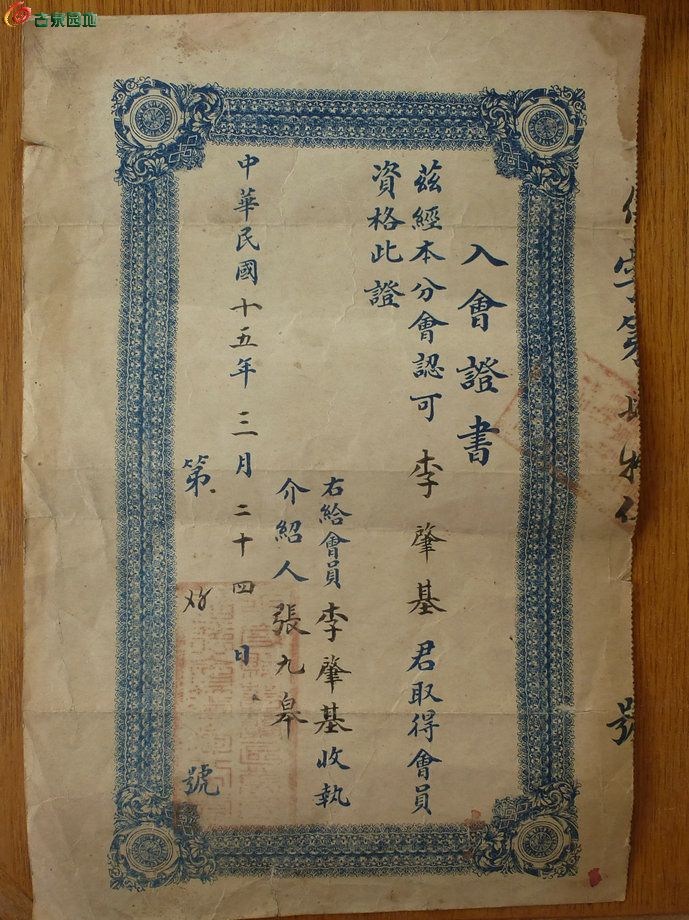 古泉园地
入會證書
茲經本分會認可李肇基君取得會員
資格此證
右給會員李肇基收執
介紹人張九皋
中華民國十五年三月二十四日
第
號
號